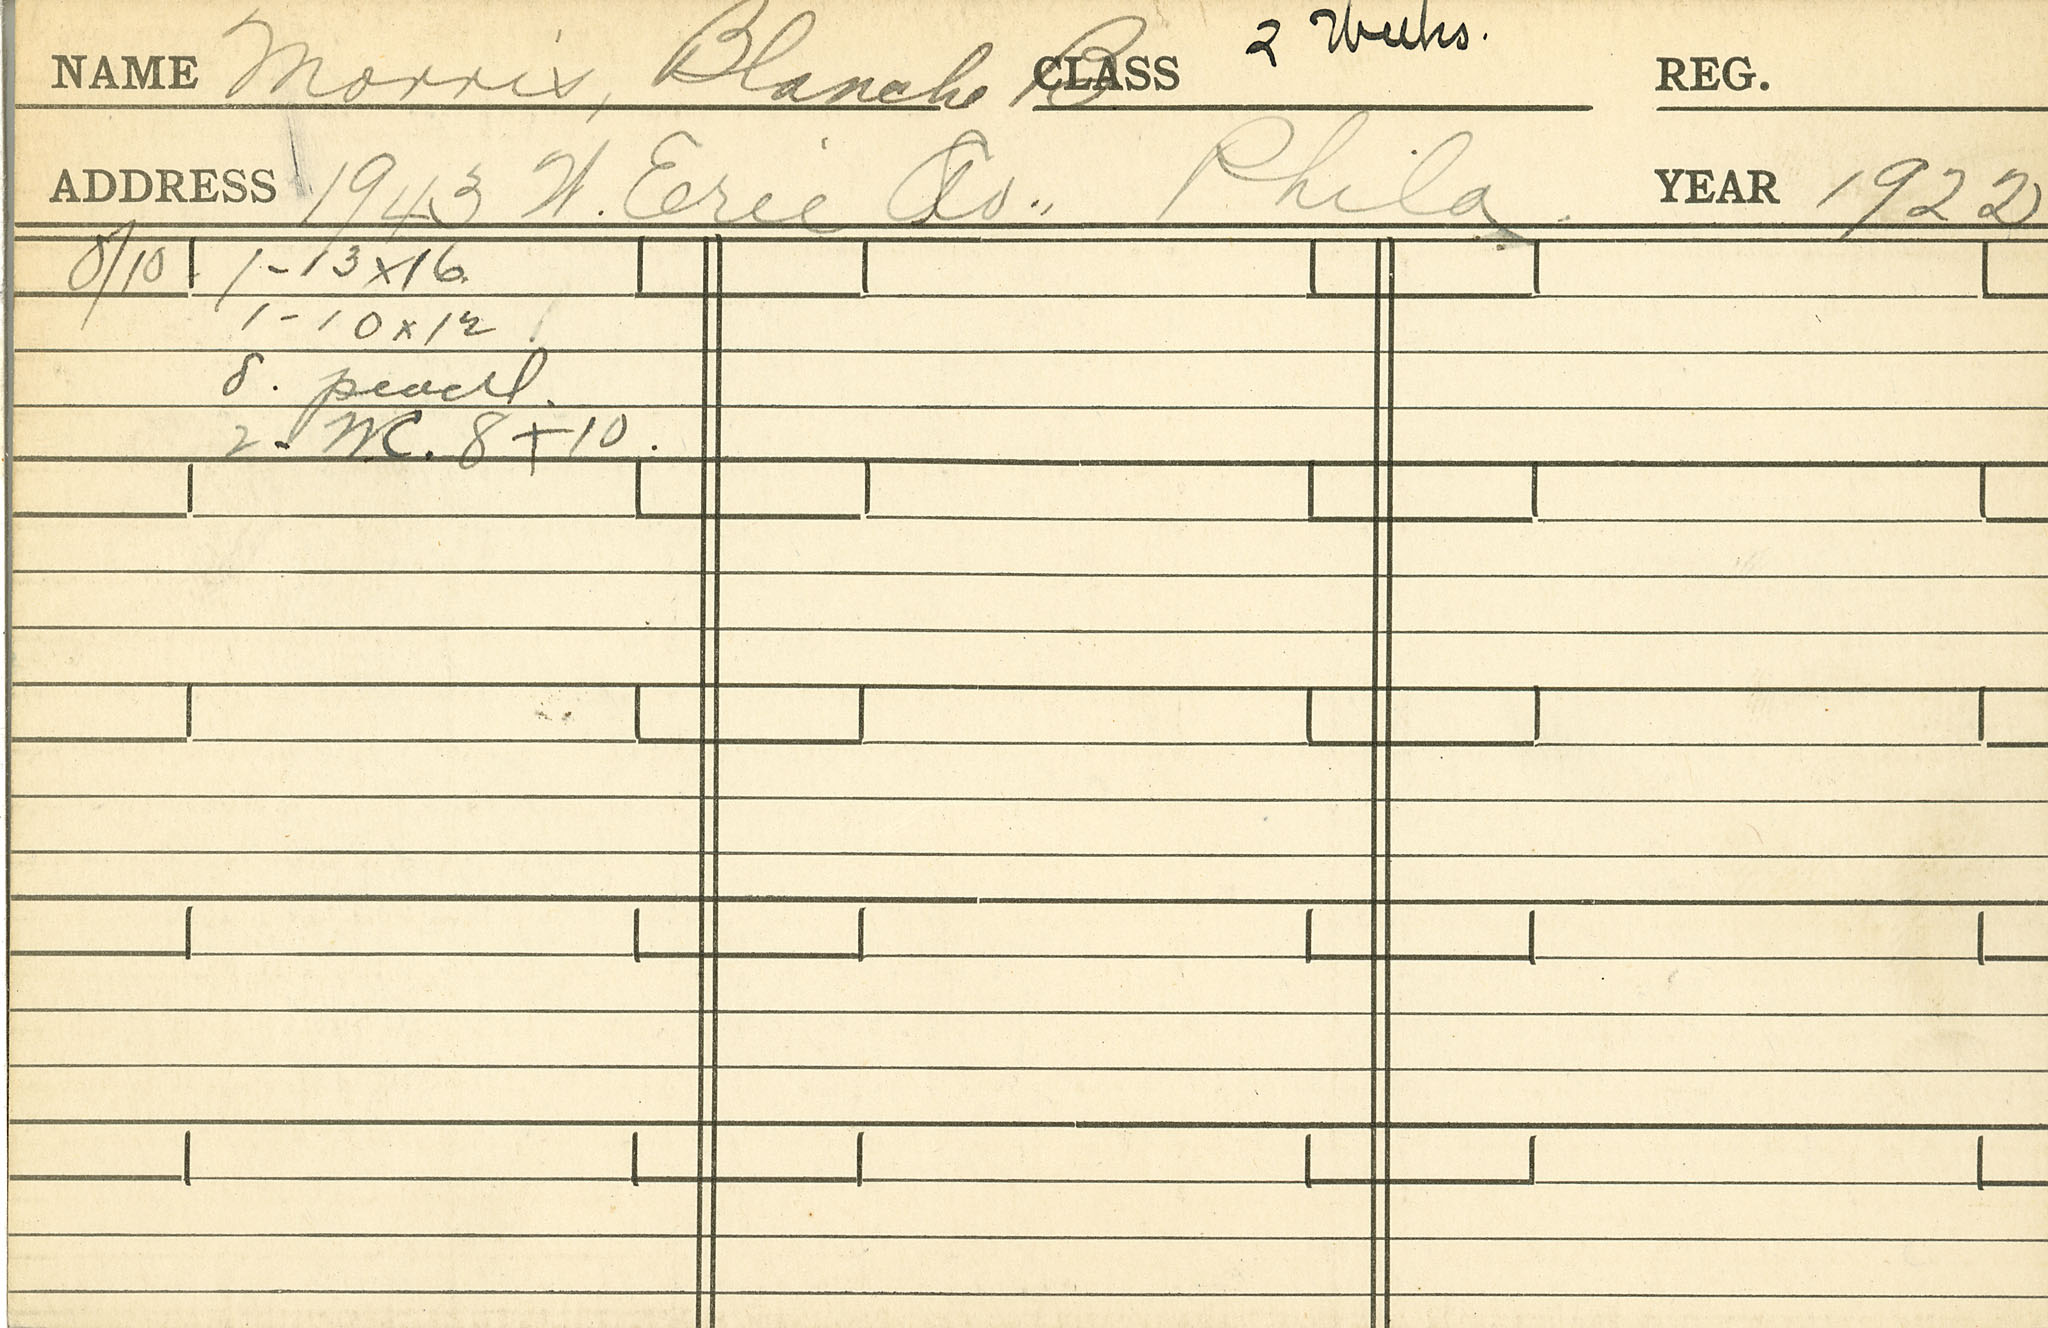 NAME Morris, Blanche B CLASS 2 Weeks. REG.
ADDRESS 1943 W. Erie Av., Phila. YEAR 1922
8/10 1-13x16
1-10x12
8. pencil.
2. WC. 8+10.